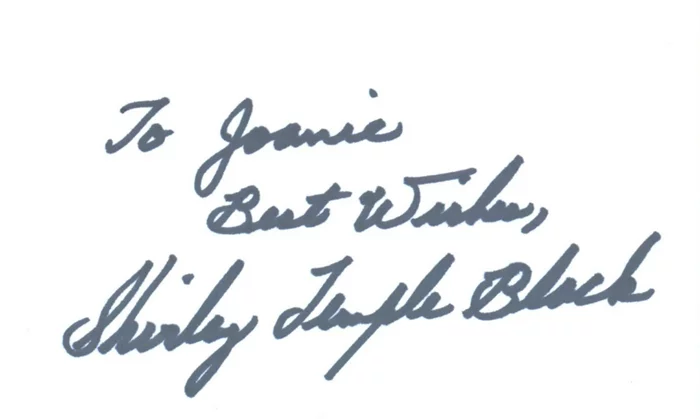 To Joanie
Best Wishes,
Shirley Temple Black